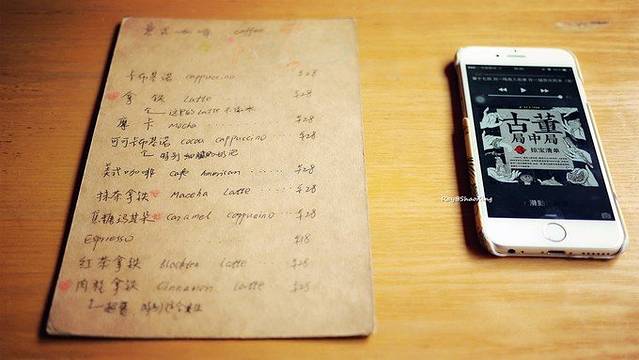 意式咖啡 coffee
卡布基诺 cappuccino ¥28
拿铁 Latte ¥28
这里的Latte不准
摩卡 Mocha ¥28
可可卡布基诺 cocoa cappuccino ¥28
特别细腻的奶泡
美式咖啡 cafe American ¥28
抹茶拿铁 Maccha Latte ¥28
焦糖玛其朵 Caramel cappucino ¥28
Espresso ¥18
红茶拿铁 blacktea Latte ¥28
肉桂拿铁 Cinnamon Latte ¥28
超赞
古董
局中局
掠宝清单
滑動
Ray@Shaoxing